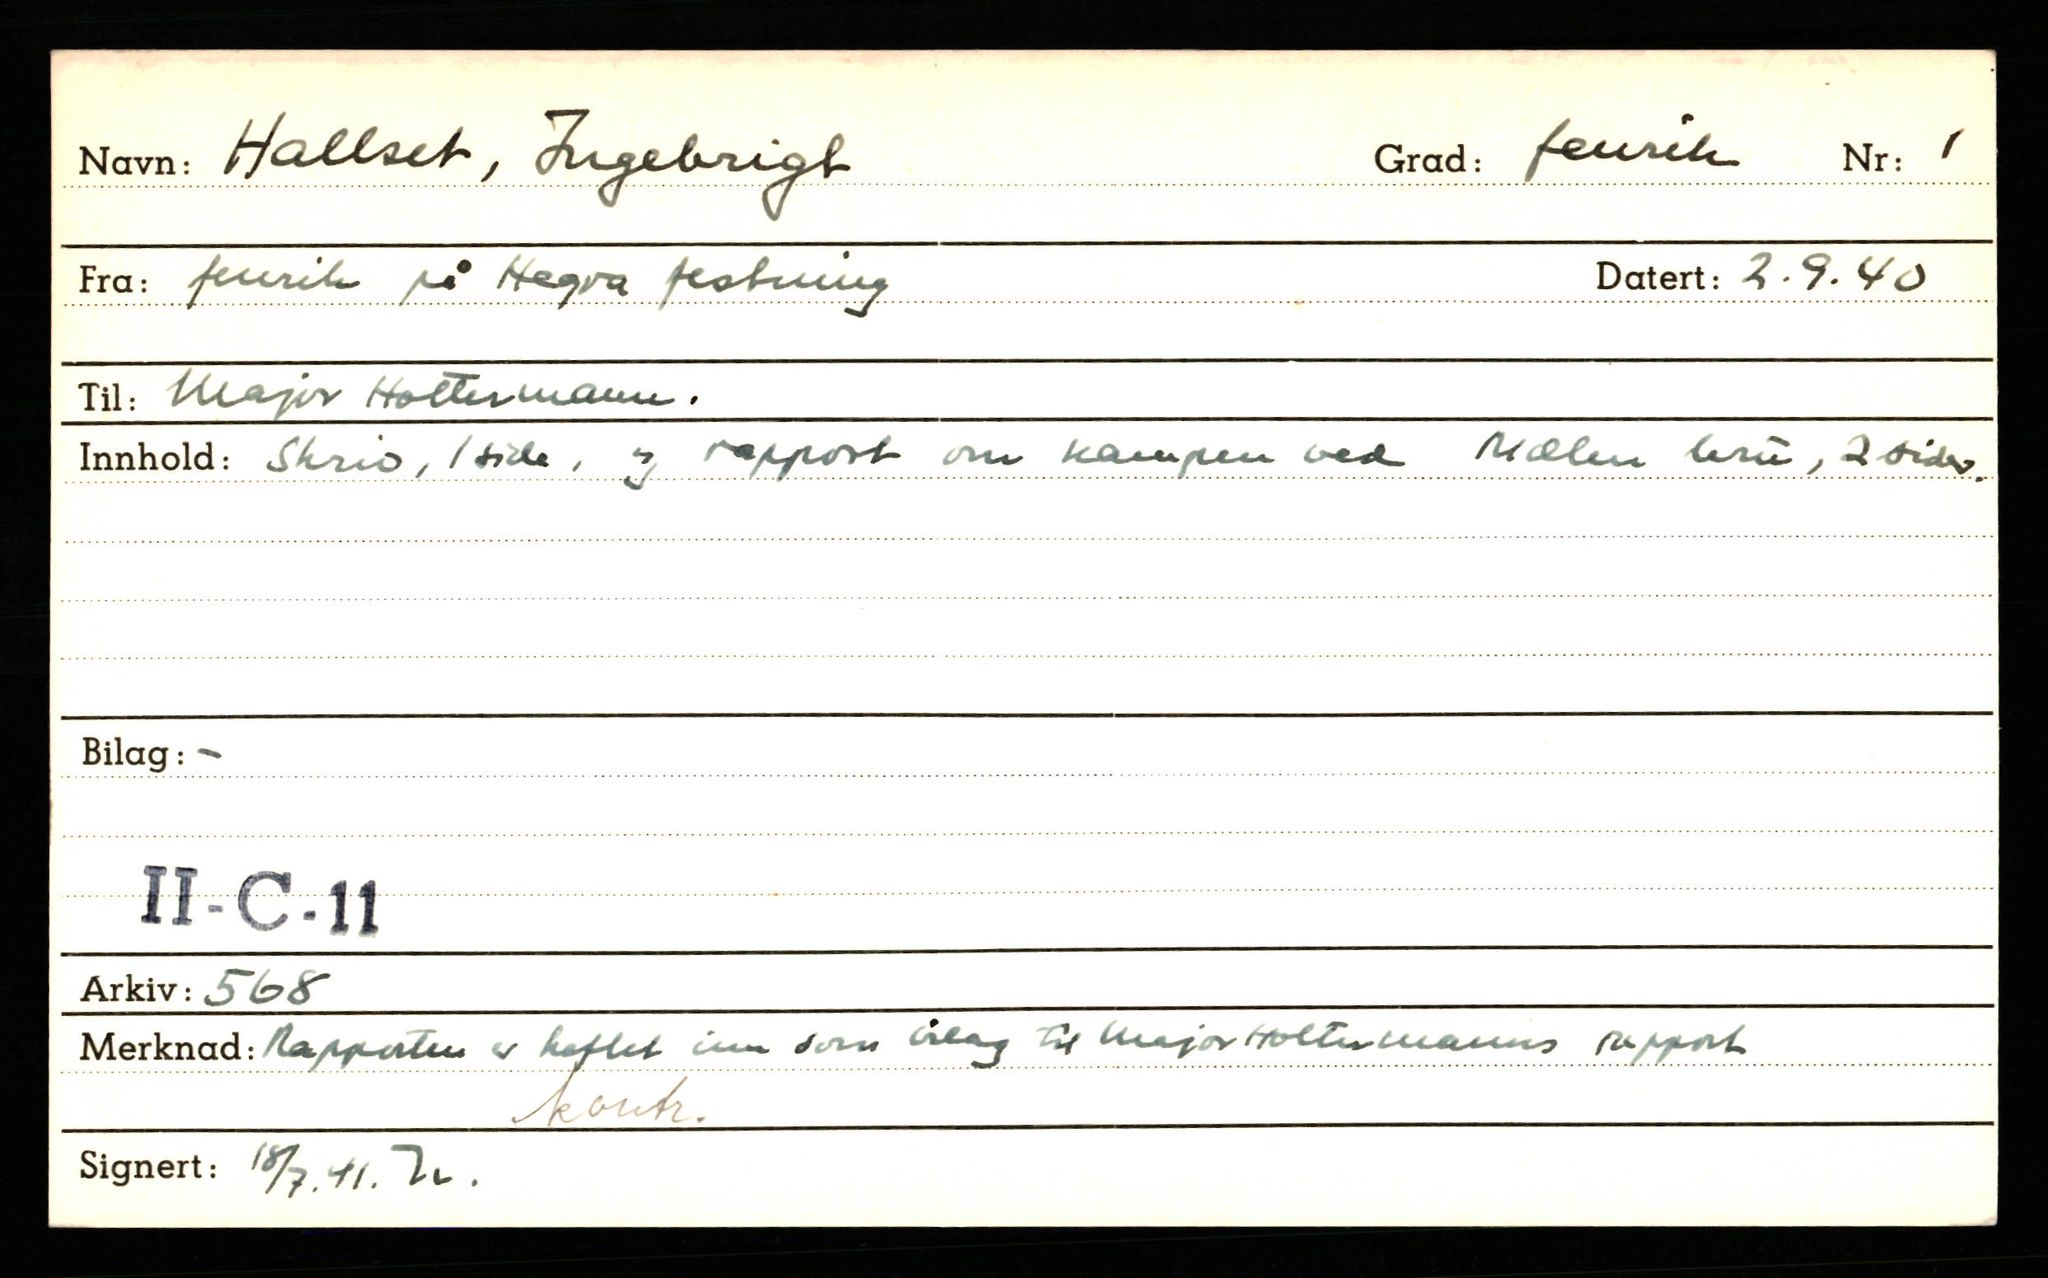 Navn: Hallset, Ingebrigt Grad: fenrik Nr: 1
Fra: fenrik på Hegra festning Datert: 2.9.40
Til: Major Holtermann.
Innhold: Skriv, 1 side, og rapport om kampen ved Mælen bru, 2 sider.
Bilag: -
II-C-11
Arkiv: 568
Merknad: Rapporten er heftet inn som bilag til Major Holtermanns rapport
kontr.
Signert: 18/7.41.